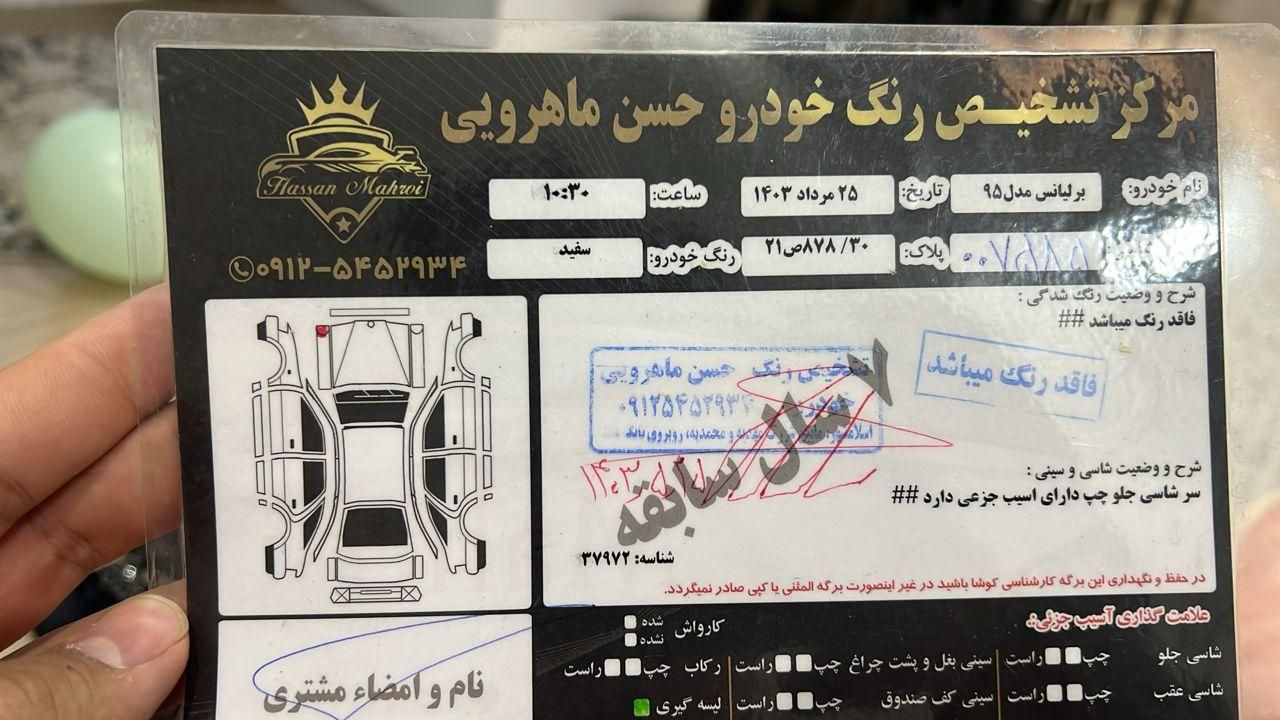 مرکز تشخیص رنگ خودرو حسن ماهرویی
Hassan Mahroi
۰۹۱۲-۵۴۵۲۹۳۴
نام خودرو: برلیانس مدل۹۵ تاریخ: ۲۵ مرداد ۱۴۰۳ ساعت: ۱۰:۳۰
پلاک: ۳۰/ ۸۷۸ص۲۱ رنگ خودرو: سفید
شرح و وضعیت رنگ شدگی :
فاقد رنگ میباشد ##
فاقد رنگ میباشد
تشخیص رنگ حسن ماهرویی
خودرو: ۰۹۱۲۵۴۵۲۹۳۴
و محمدیه، روبروی باند
۷ سال سابقه
شرح و وضعیت شاسی و سینی :
سر شاسی جلو چپ دارای اسیب جزعی دارد ##
شناسه: ۳۷۹۷۲
در حفظ و نگهداری این برگه کارشناسی کوشا باشید در غیر اینصورت برگه المثنی یا کپی صادر نمیگردد.
علامت گذاری آسیب جزئی:.
کارواش شده نشده
شاسی جلو چپ راست سینی بغل و پشت چراغ چپ راست رکاب چپ راست
شاسی عقب چپ راست سینی کف صندوق چپ راست لیسه گیری
نام و امضاء مشتری